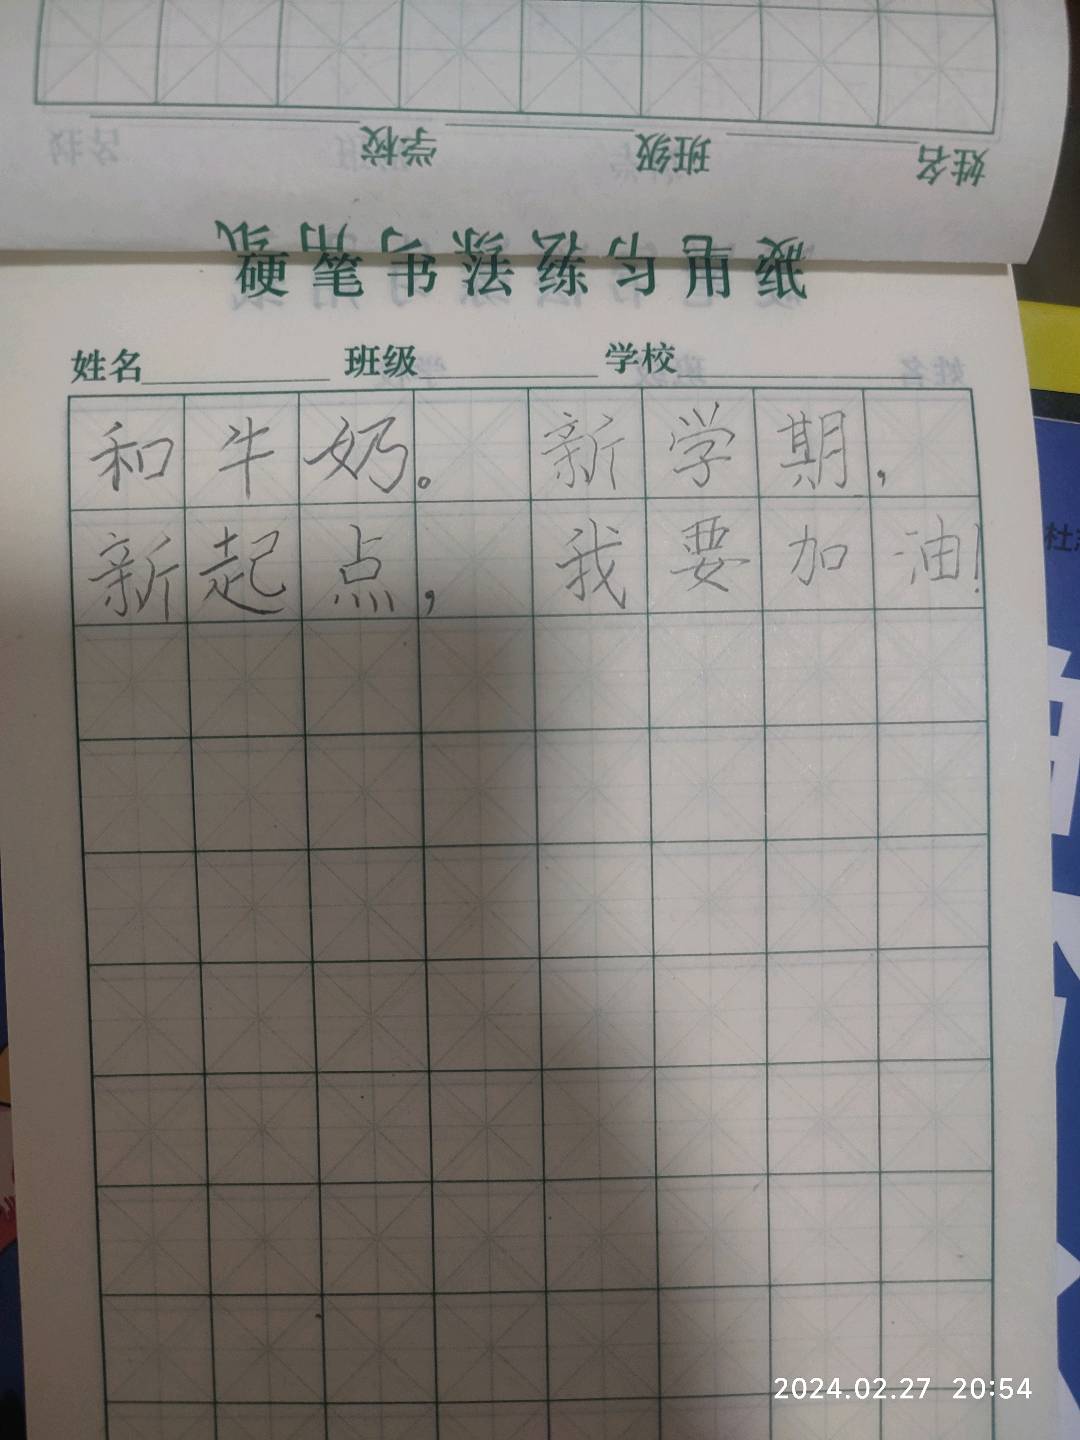 学校 班级 姓名
硬笔书法练习用纸
姓名 班级 学校
和牛奶。新学期，
新起点，我要加油！
杜
2024.02.27 20:54